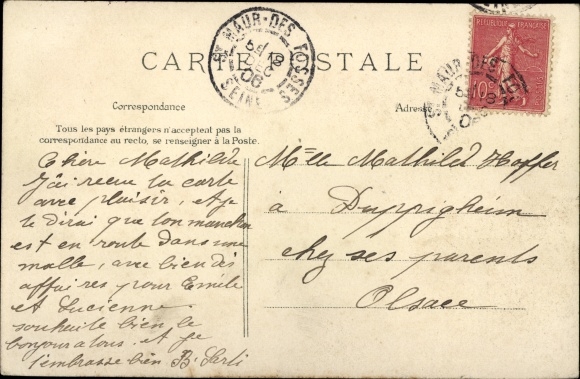 CARTE POSTALE
ST MAUR-DES-FOSSÉS
SEINE
06
RÉPUBLIQUE FRANÇAISE
10c
ST MAUR-DES-FOS
Correspondance
Adresse
Tous les pays étrangers n'acceptent pas la
correspondance au recto, se renseigner à la Poste.
Chère Mathilde
J'ai reçu ta carte
avec plaisir, et je
te dirai que ton manchon
est en route dans une
malle, avec bien des
affaires pour Emile
et Lucienne
souhaite bien le
bonjour a tous. et je
t'embrasse bien B.
Mlle Mathilde Hoffer
à Duppigheim
chez ses parents
Alsace